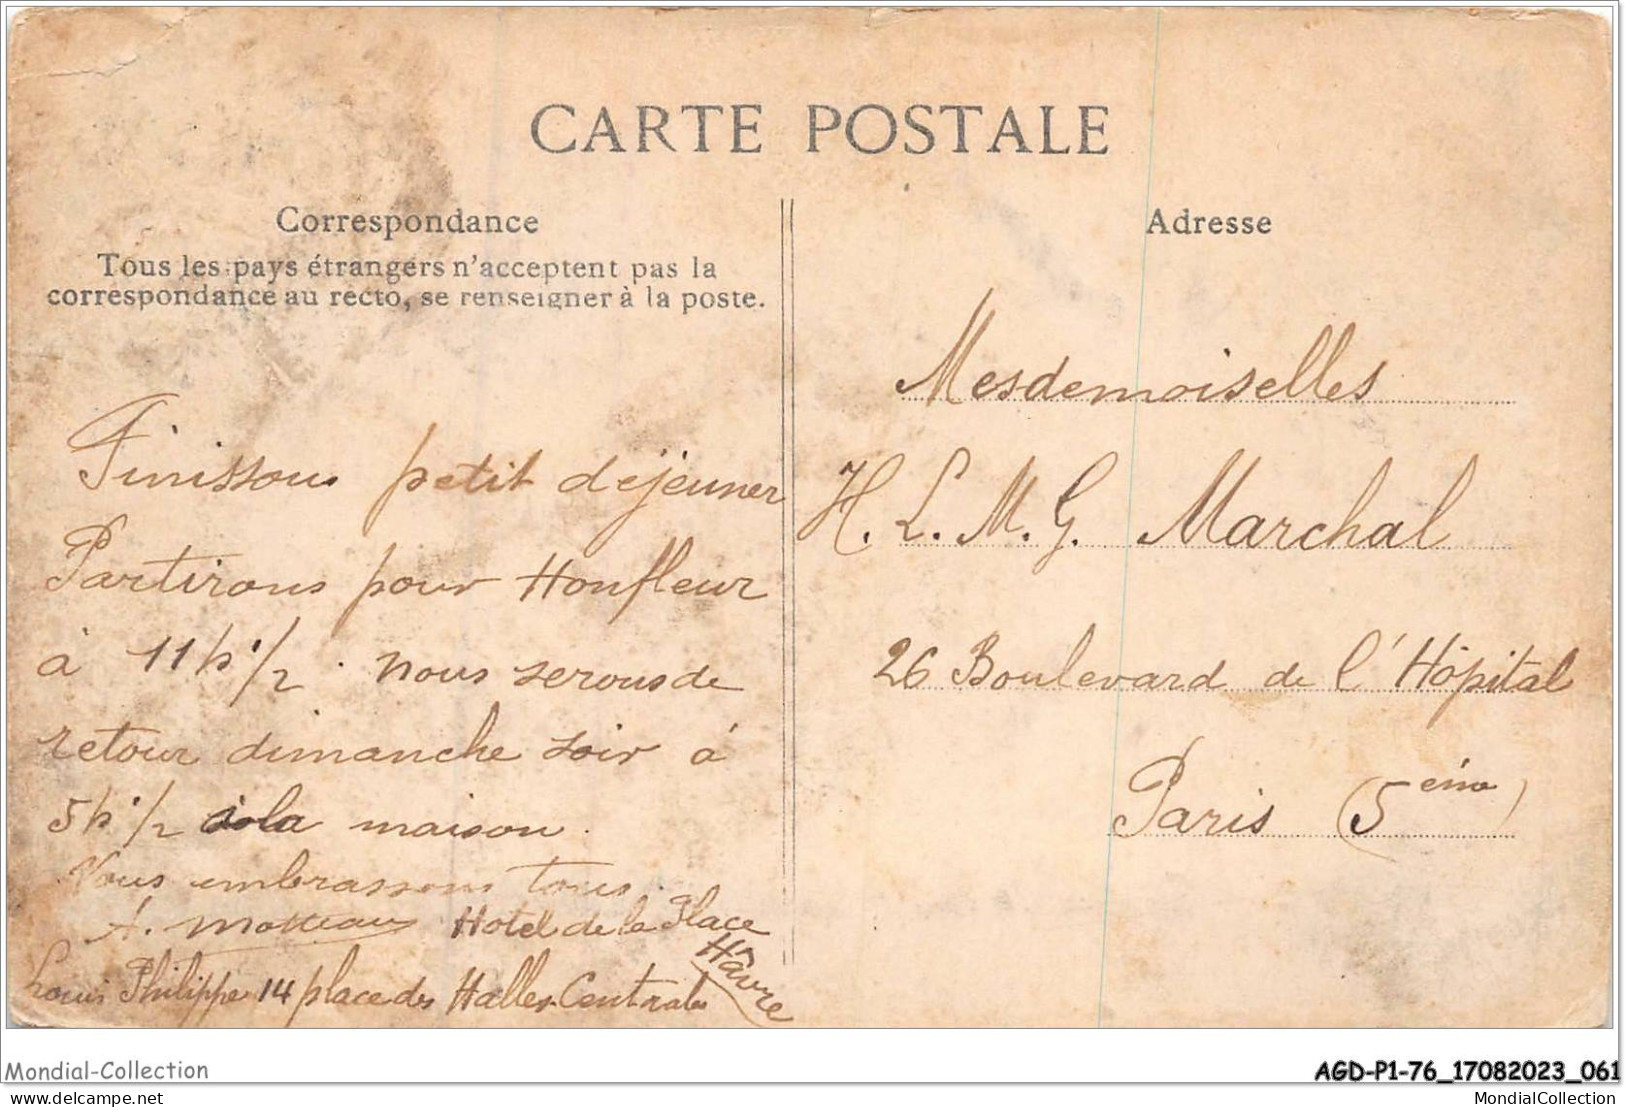 CARTE POSTALE
Correspondance
Tous les pays étrangers n'acceptent pas la
correspondance au recto, se renseigner à la poste.
Finissons petit déjeuner
Partirons pour Honfleur
à 11h 1/2. Nous serons de
retour dimanche soir à
5h 1/2 à la maison.
Vous embrassons tous.
A. Hotel de la Place
Hâvre
Louis Philippe 14 place des Halles Centrales
Adresse
Mesdemoiselles
H. L. M. G. Marchal
26 Boulevard de l'Hôpital
Paris (5ème)
Mondial-Collection
AGD-P1-76_17082023_061
delcampe.net
MondialCollection